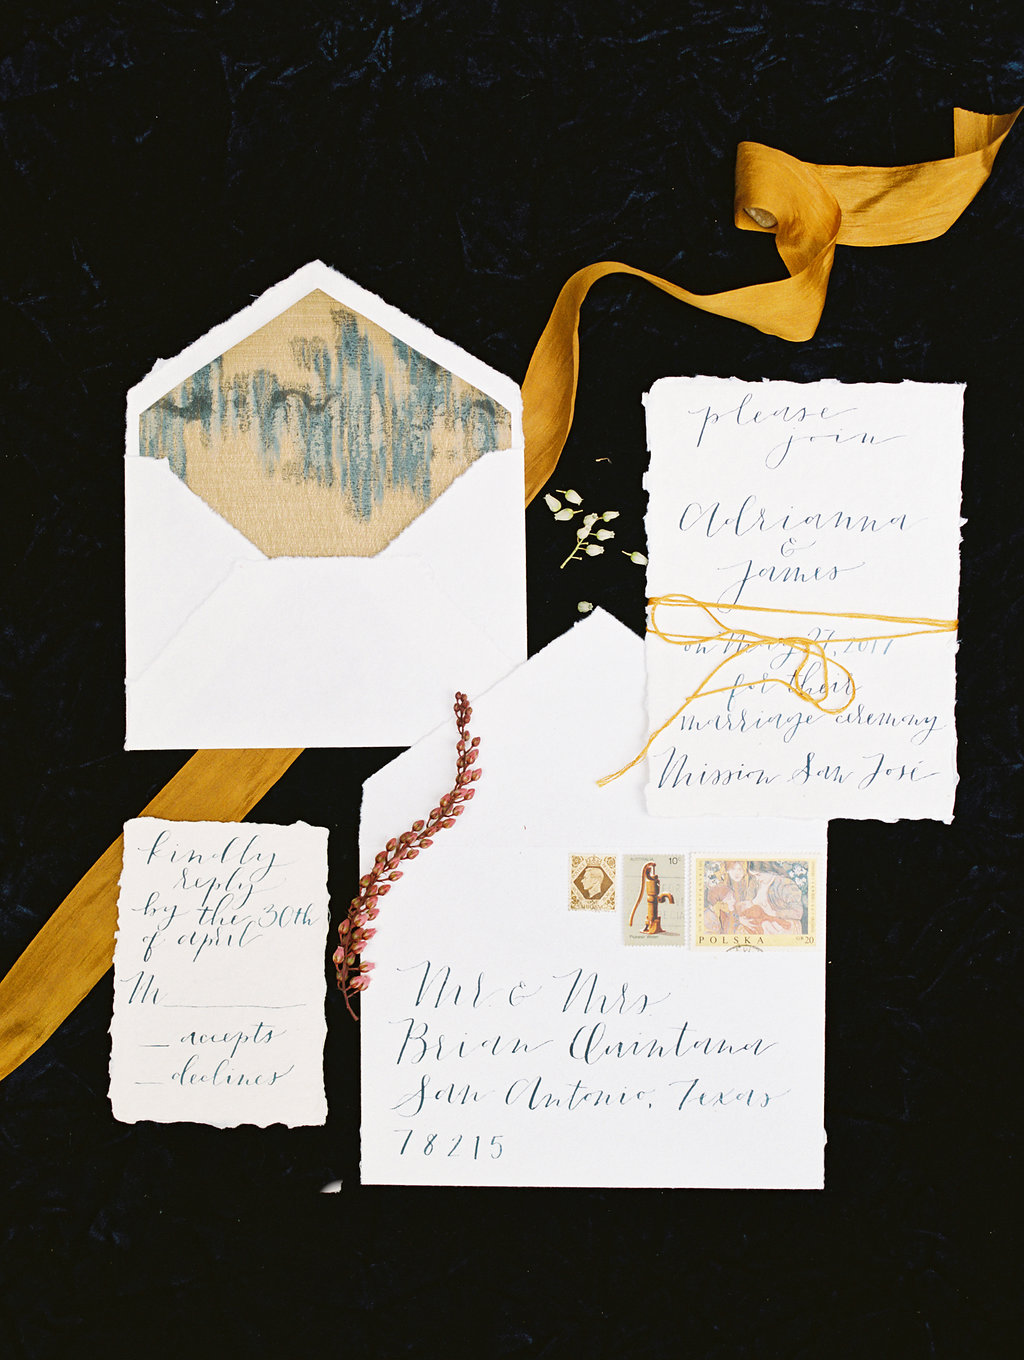 please
join
Adrianna
&
James
on May 27, 2017
for their
marriage ceremony
Mission San José
kindly
reply
by the 30th
of april
M
accepts
declines
10
POLSKA 20
Mr. & Mrs.
Brian Quintana
San Antonio, Texas
78215